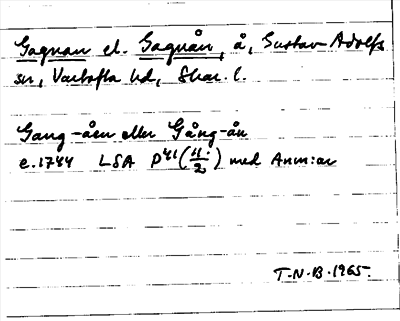 Gagnan el. Gagnån, å, Gustav Adolfs
sn, Vartofta hd, Skar. l.
Gang-åen eller Gång-ån
c.1744 LSA P41 (11:/2) med Anm:ar
T.N.B. 1965.